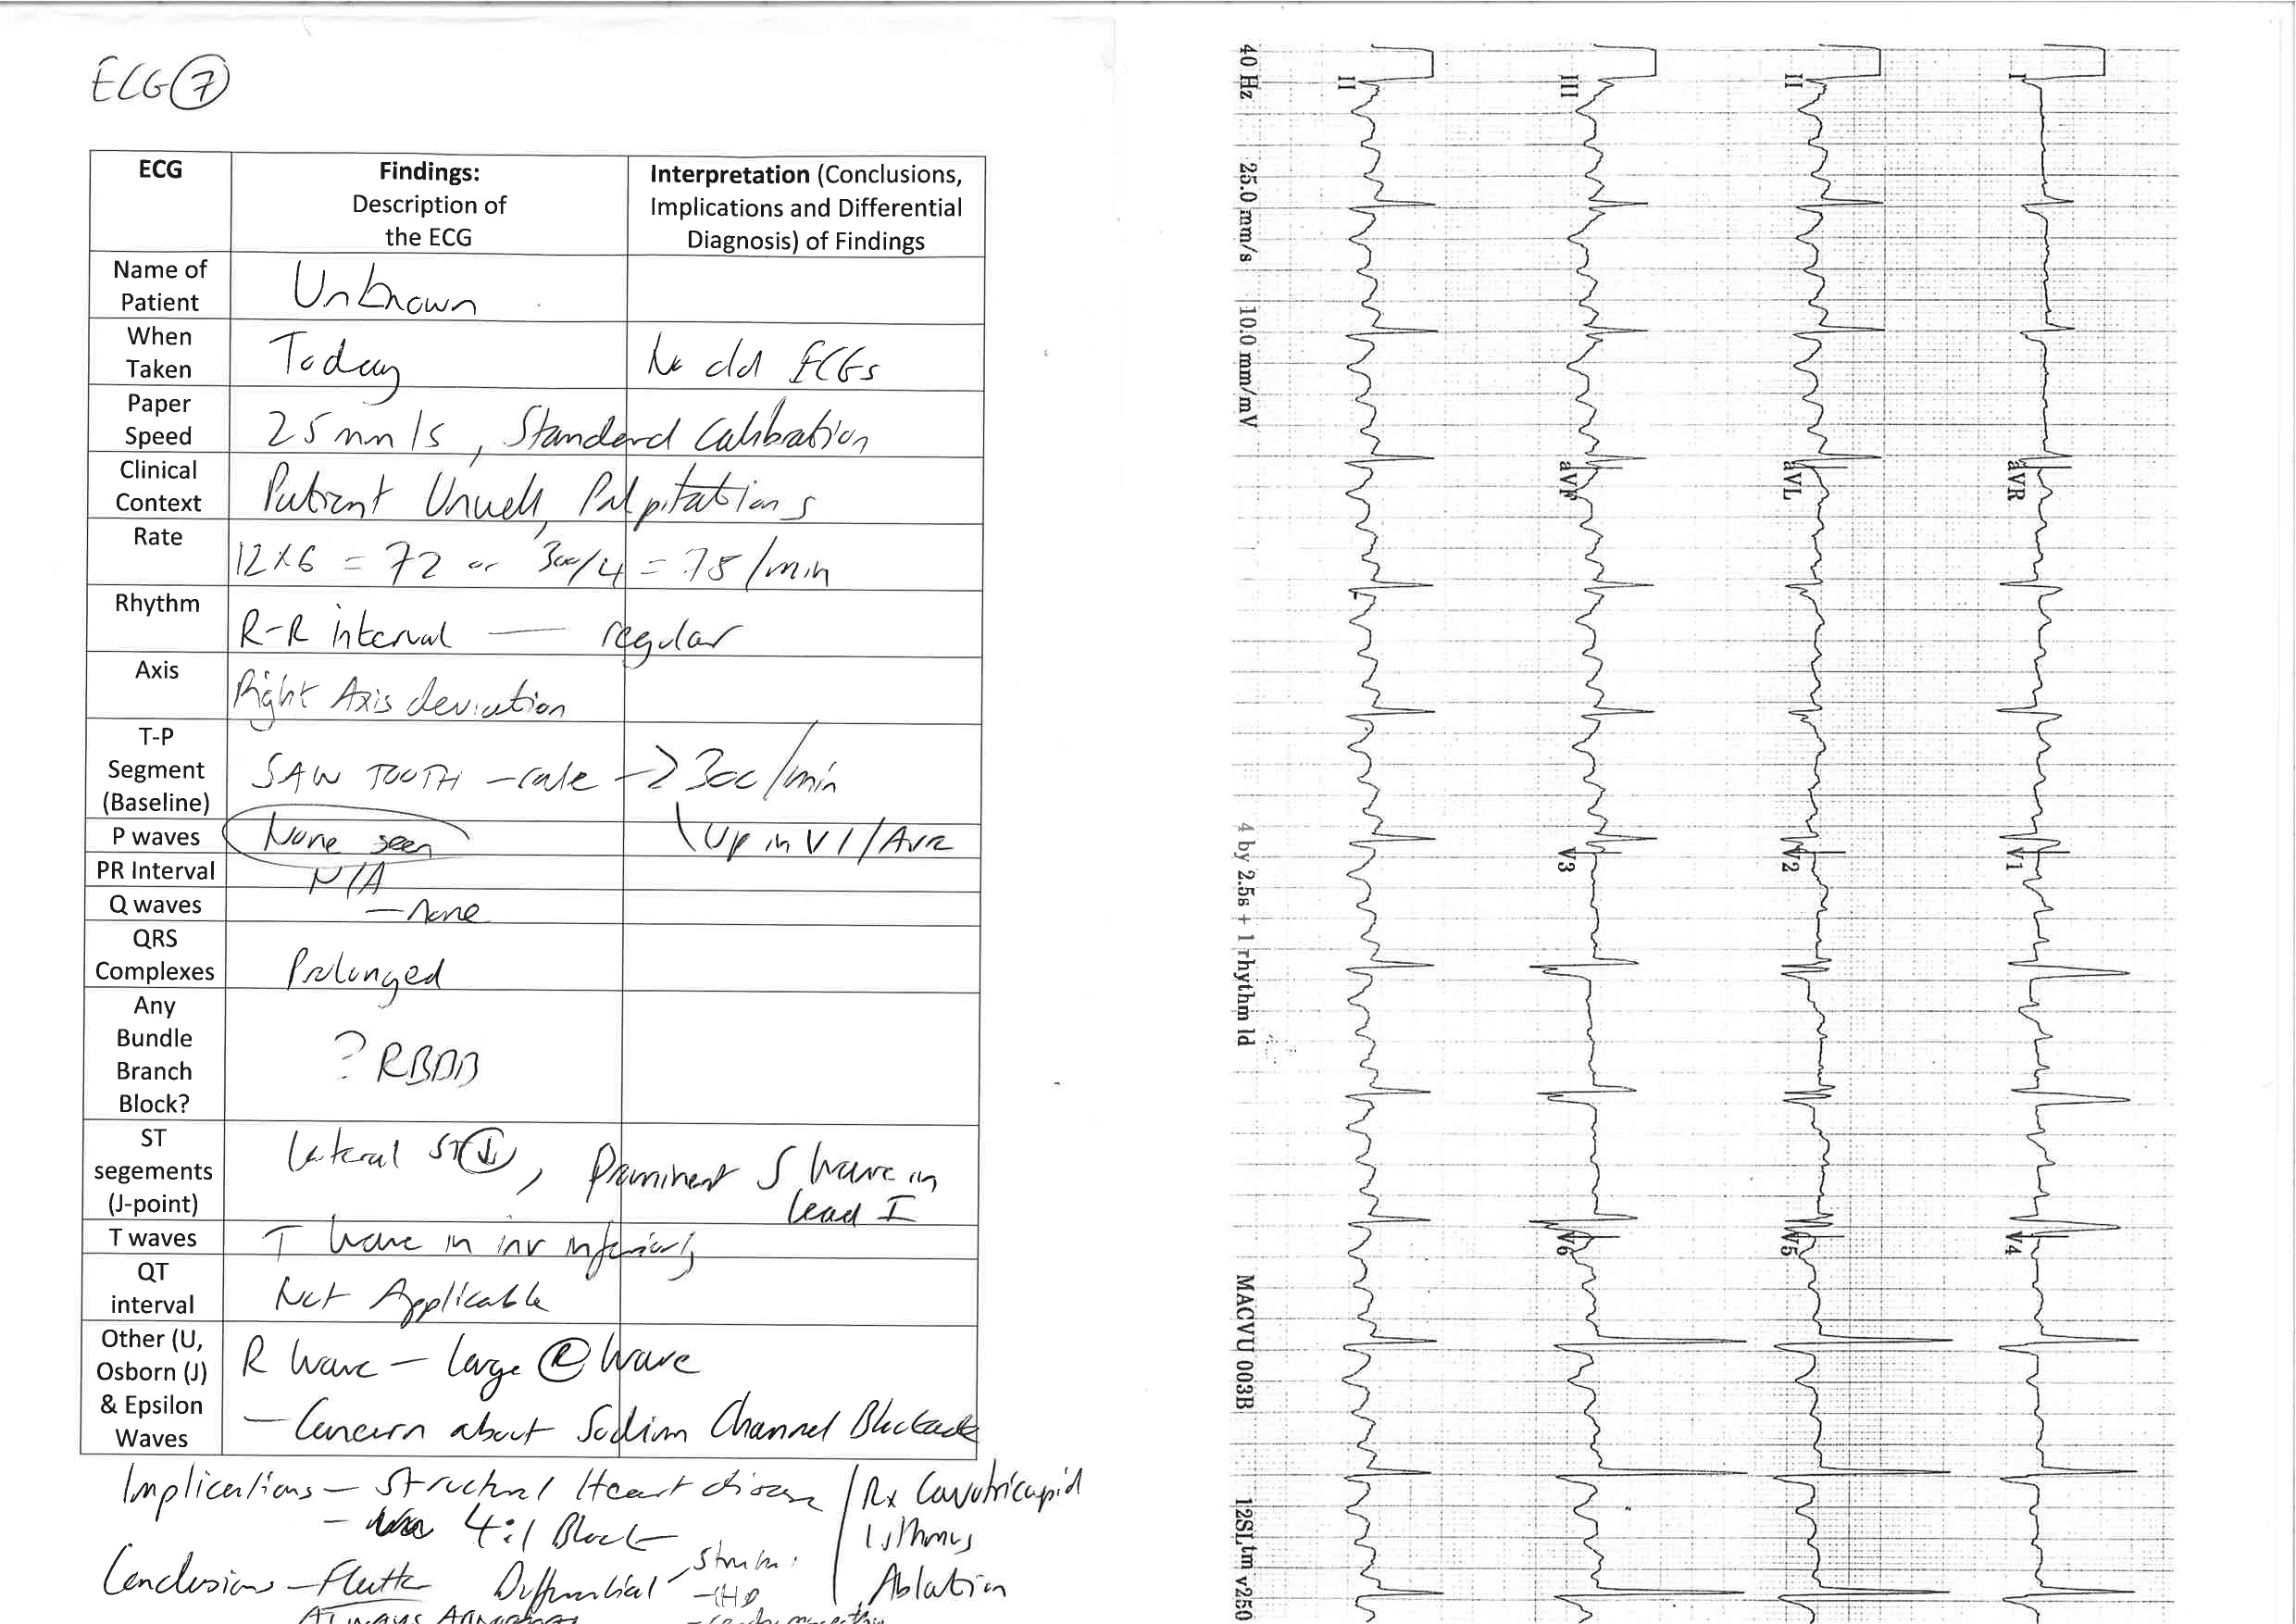 ECG 7
ECG
Findings:
Description of
the ECG
Interpretation (Conclusions,
Implications and Differential
Diagnosis) of Findings
Name of
Patient
Unknown
When
Taken
Today
No old ECGs
Paper
Speed
25mm/s, Standard Calibration
Clinical
Context
Patient Unwell, Palpitations
Rate
12x6 = 72 or 300/4 = 75/min
Rhythm
R-R interval — regular
Axis
Right Axis deviation
T-P
Segment
(Baseline)
SAW TOOTH - rate -> 300/min
P waves
None seen
Up in V1/AVR
PR Interval
N/A
Q waves
- None
QRS
Complexes
Prolonged
Any
Bundle
Branch
Block?
? RBBB
ST
segements
(J-point)
Lateral ST↓, Prominent S wave in
lead I
T waves
T wave in inv inferiorly
QT
interval
Not Applicable
Other (U,
Osborn (J)
& Epsilon
Waves
R wave - large R wave
- Concern about Sodium Channel Blockade
Implications - Structural Heart disease / Rx Cavotricuspid
- 4:1 Block
Isthmus
Ablation
Conclusions - Flutter Differential - Strain
- IHD
Always
40 Hz 25.0 mm/s 10.0 mm/mV 4 by 2.5s + 1 rhythm ld MACVU 003B 12SLtm v250
I aVR V1 V4
II aVL V2 V5
III aVF V3 V6
II